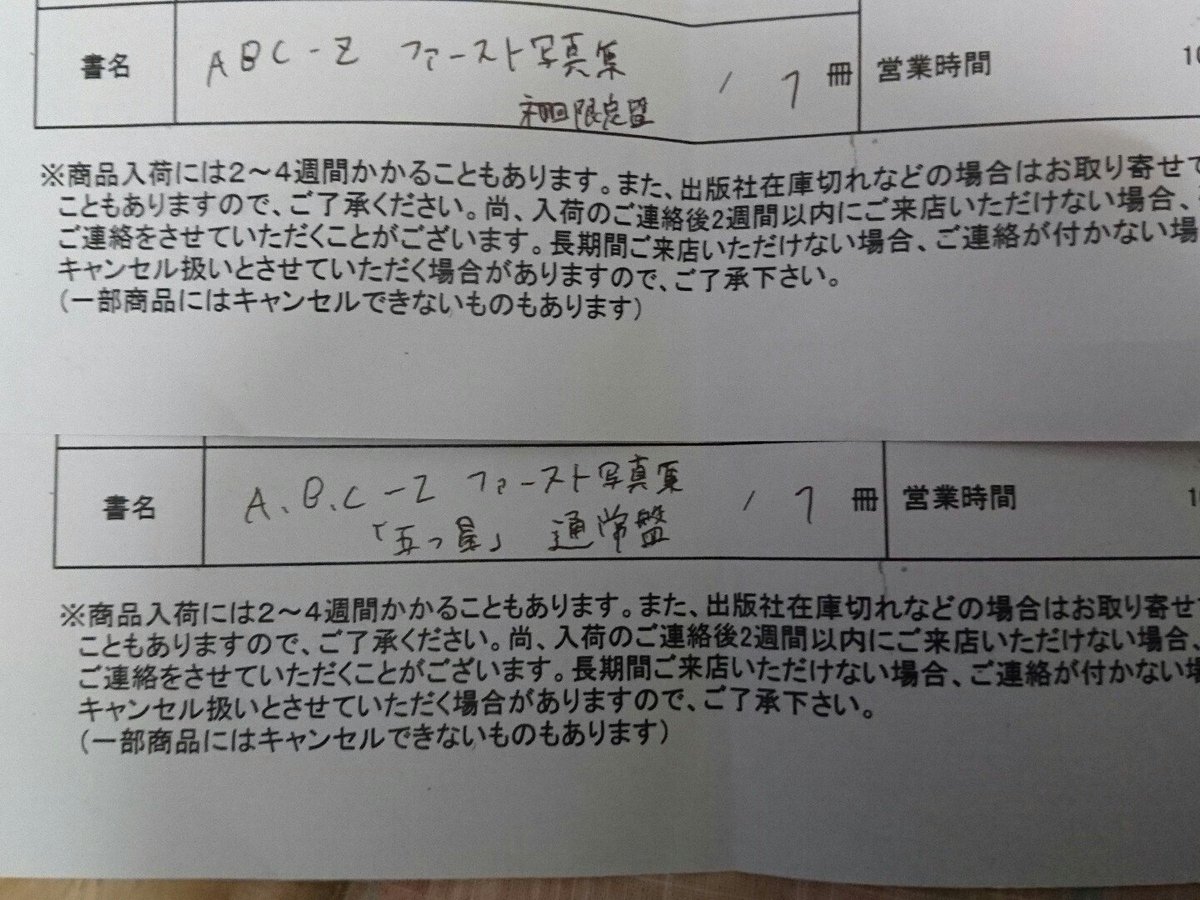 書名 ABC-Z ファースト写真集 / 1 冊 営業時間 10
初回限定盤
※商品入荷には2～4週間かかることもあります。また、出版社在庫切れなどの場合はお取り寄せで
こともありますので、ご了承ください。尚、入荷のご連絡後2週間以内にご来店いただけない場合、
ご連絡をさせていただくことがございます。長期間ご来店いただけない場合、ご連絡が付かない場
キャンセル扱いとさせていただく場合がありますので、ご了承下さい。
(一部商品にはキャンセルできないものもあります)
書名 A.B.C-Z ファースト写真集 / 1 冊 営業時間 1
「五つ星」 通常盤
※商品入荷には2～4週間かかることもあります。また、出版社在庫切れなどの場合はお取り寄せ
こともありますので、ご了承ください。尚、入荷のご連絡後2週間以内にご来店いただけない場合、
ご連絡をさせていただくことがございます。長期間ご来店いただけない場合、ご連絡が付かない場
キャンセル扱いとさせていただく場合がありますので、ご了承下さい。
(一部商品にはキャンセルできないものもあります)